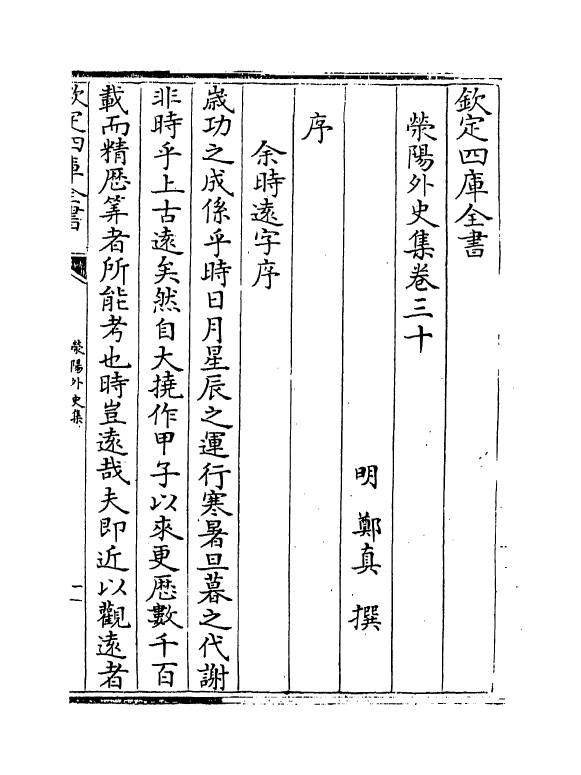 欽定四庫全書
滎陽外史集卷三十
明 鄭真 撰
序
余時遠字序
歲功之成係乎時日月星辰之運行寒暑旦暮之代謝
非時乎上古遠矣然自大撓作甲子以來更歴數千百
載而精歴筭者所能考也時豈遠哉夫即近以觀遠者
欽定四庫全書
滎陽外史集
一